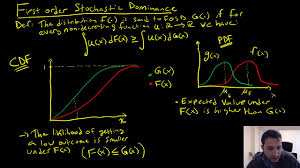 First order Stochastic Dominance
Def: The distribution F(·) is said to FOSD G(·) if for
every nondecreasing function u: R → R we have:
∫u(x)dF(x) ≥ ∫u(x)dG(x)
CDF
1
G(x)
F(x)
x
→ The likelihood of getting
a low outcome is smaller
under F(x) (F(x) ≤ G(x))
PDF
g(x)
f(x)
x
• Expected Value under
F(x) is higher than G(x)